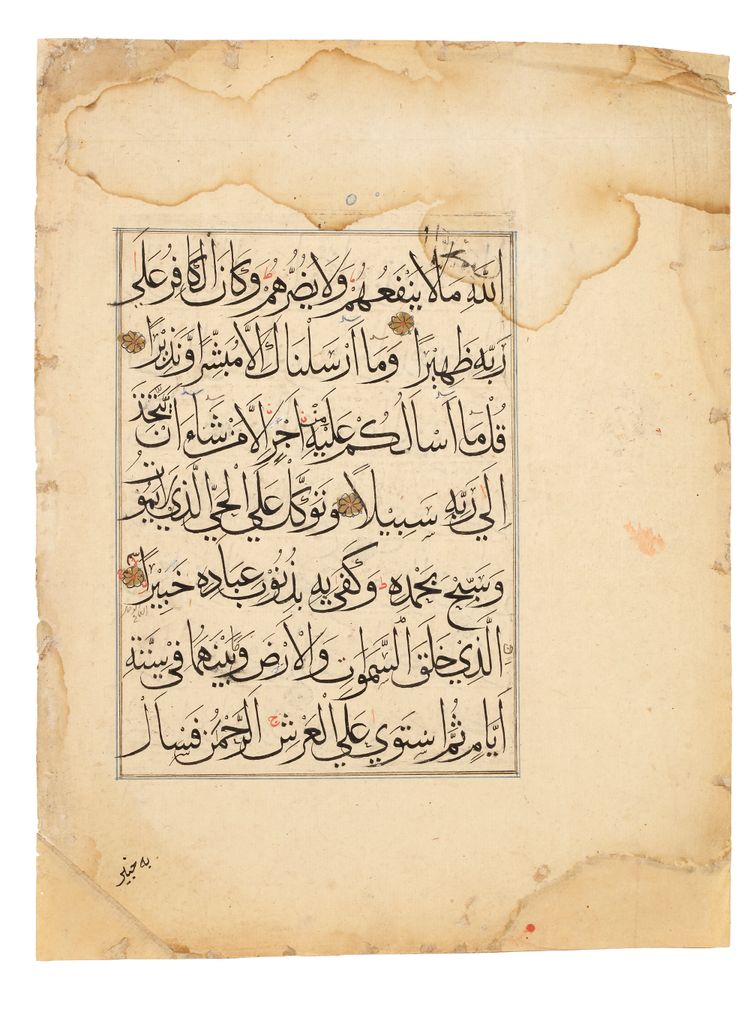 اللّٰهِ مَا لَا يَنْفَعُهُمْ وَلَا يَضُرُّهُمْ ط وَكَانَ الْكَافِرُ عَلَى
رَبِّهِ ظَهِيْرًا وَمَا اَرْسَلْنَاكَ اِلَّا مُبَشِّرًا وَّنَذِيْرًا
قُلْ مَا اَسْاَلُكُمْ عَلَيْهِ مِنْ اَجْرٍ اِلَّا مَنْ شَاءَ اَنْ يَّتَّخِذَ
اِلٰى رَبِّهِ سَبِيْلًا وَتَوَكَّلْ عَلَى الْحَيِّ الَّذِيْ لَا يَمُوْتُ
وَسَبِّحْ بِحَمْدِهِ ط وَكَفٰى بِهِ بِذُنُوْبِ عِبَادِهِ خَبِيْرًا
الَّذِيْ خَلَقَ السَّمٰوَاتِ وَالْاَرْضَ وَمَا بَيْنَهُمَا فِيْ سِتَّةِ
اَيَّامٍ ثُمَّ اسْتَوٰى عَلَى الْعَرْشِ ج اَلرَّحْمٰنُ فَسْاَلْ
به خبیر